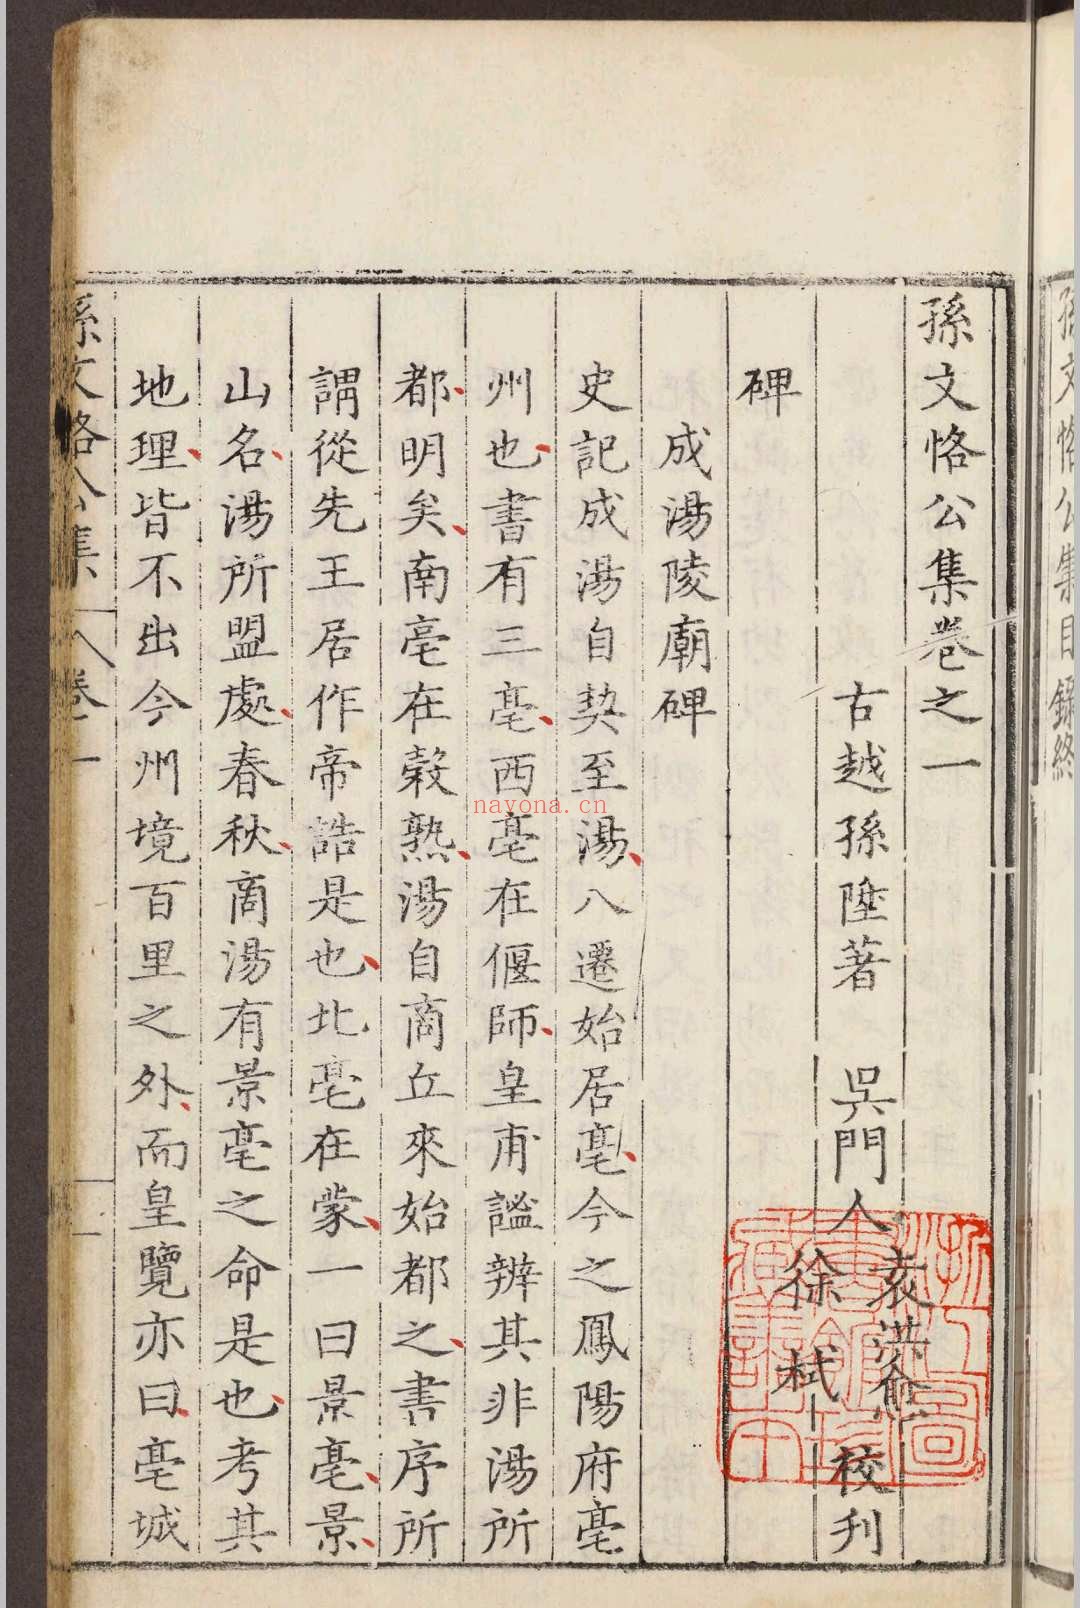 孫文恪公集目錄終
孫文恪公集卷之一
古越孫陞著 吳門人袁洪愈徐栻校刋
碑
成湯陵廟碑
史記成湯自契至湯八遷始居亳今之鳳陽府亳
州也書有三亳西亳在偃師皇甫謐辨其非湯所
都明矣南亳在榖熟湯自商丘來始都之書序所
謂從先王居作帝誥是也北亳在蒙一曰景亳景
山名湯所盟處春秋商湯有景亳之命是也考其
地理皆不出今州境百里之外而皇覽亦曰亳城
孫文恪公集 卷一 一
nayona.cn